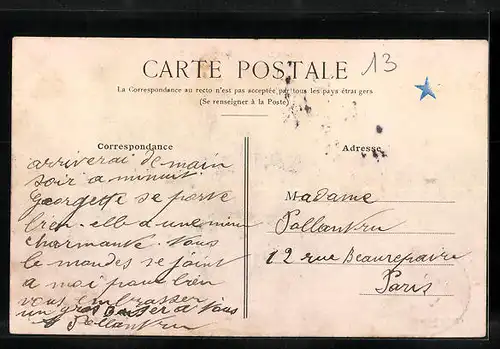 13
CARTE POSTALE
La Correspondance au recto n'est pas acceptée par tous les pays étrangers
(Se renseigner à la Poste)
Correspondance
Adresse
arriverai de main
soir a minuit.
Georgette se porte
bien. elle a une mine
charmante. Vous
le mondes se joint
a moi pour bien
vous embrasser
un gros baiser a vous
Madame
12 rue Beaurepaire
Paris